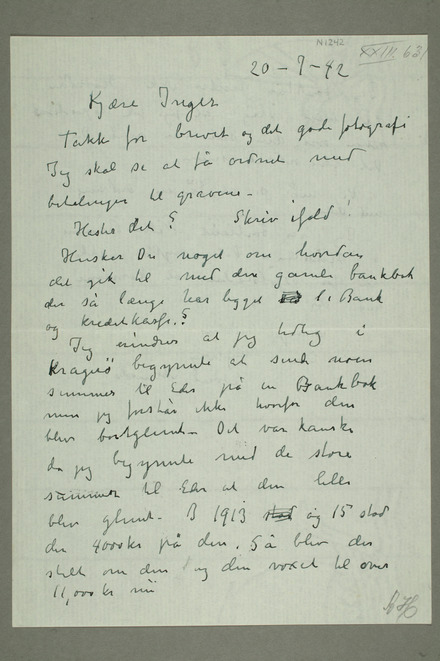 N 1242
XXIII 63
20-9-42
Kjære Inger
Takk for brevet og det gode fotografi
Jeg skal se at få ordnet med
betalinger til gravene-
Haster det? Skriv ifald!
Husker Du noget om hvordan
det gik til med den gamle bankbok
der så længe har ligget i Bank
og kreditkasse.?
Jeg erindrer at jeg tidlig i
Kragerø begynnte at sende noen
summer til Eder på en Bankbok
men jeg forstår ikke hvorfor den
blev bortglemt- Det var kanske
da jeg begynnte med de store
summer til Eder at den lille
blev glemt- I 1913 og 15 stod
der 4000kr på den. Så blev der
stelt om den og den voxet til over
11,000kr nu